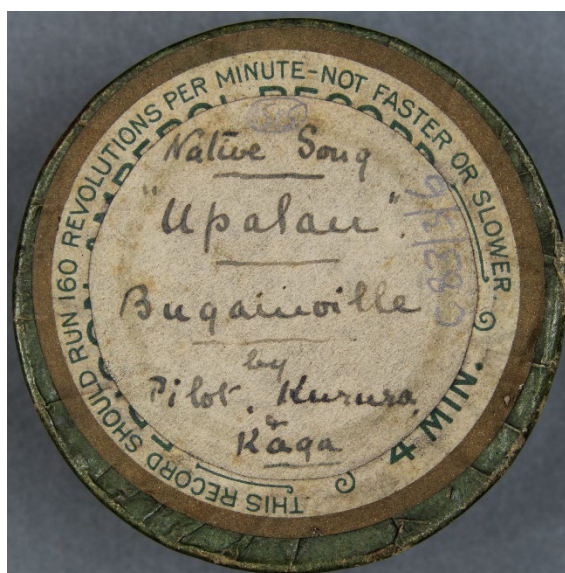 THIS RECORD SHOULD RUN 160 REVOLUTIONS PER MINUTE-NOT FASTER OR SLOWER.
4 MIN.
Native Song
"Upalau".
Bugainville
by
Pilot, Kurura
&
Kāga
C83/2/6